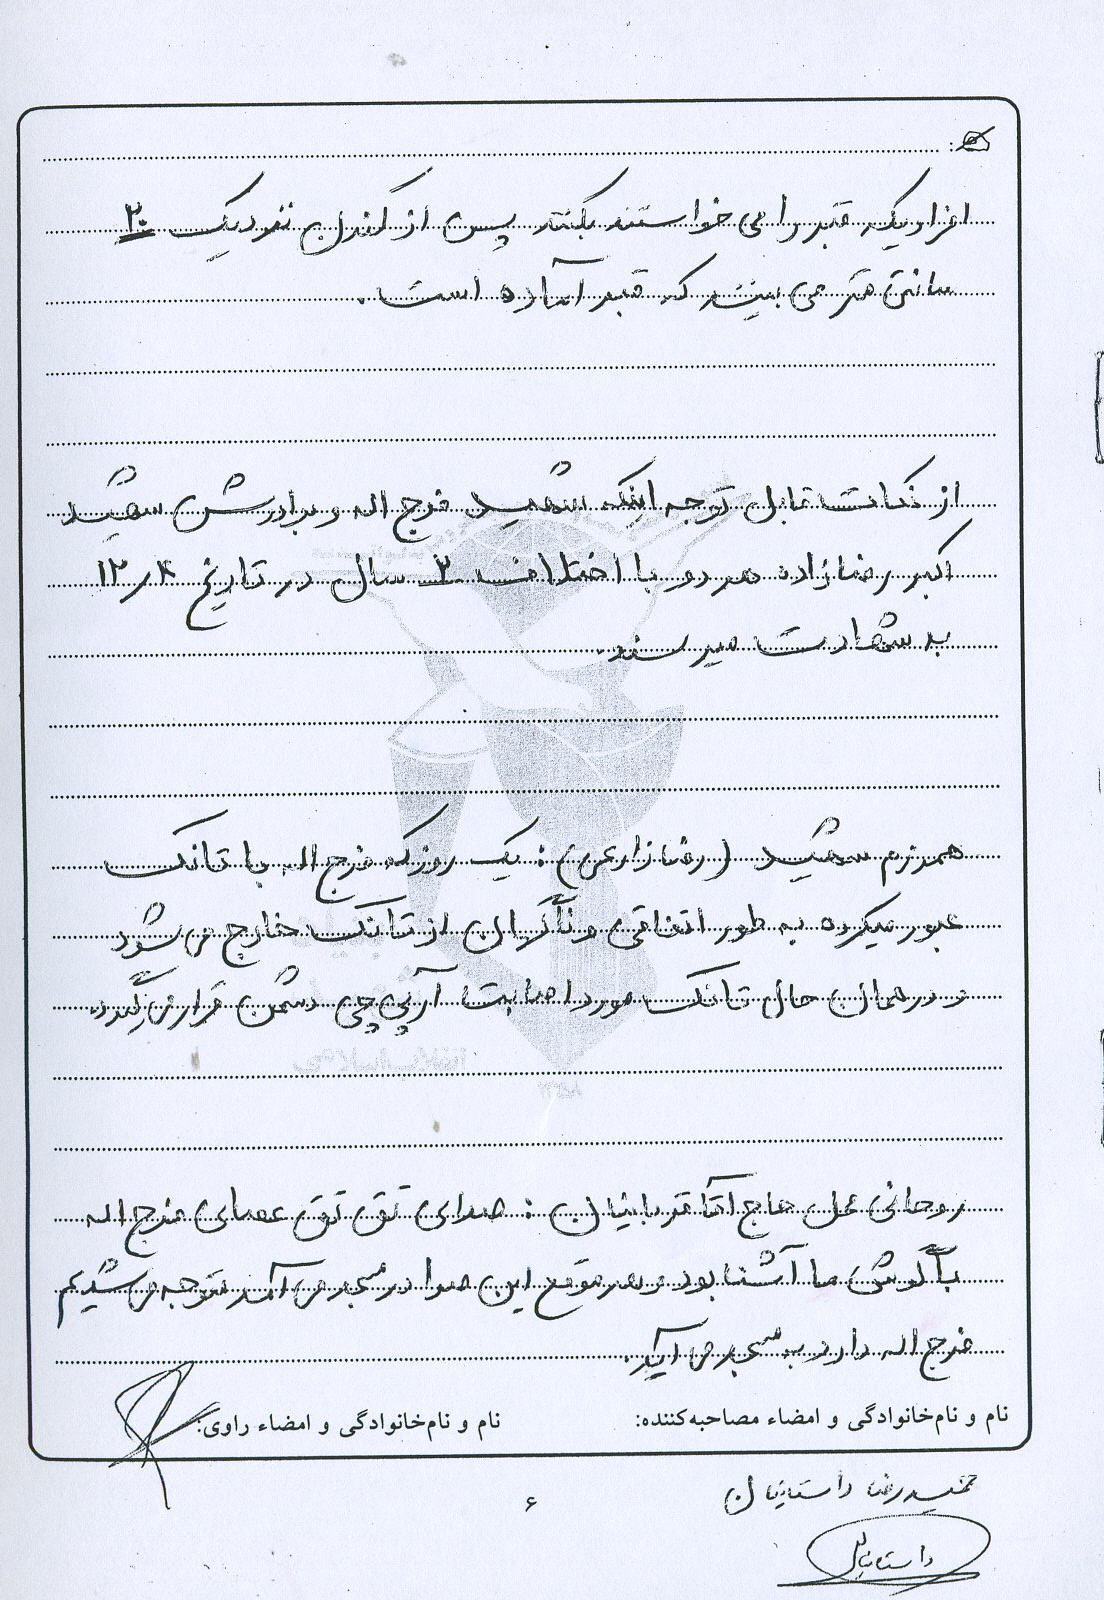 افراد یک قبر را می خواستند بکنند پس از کندن نزدیک ۳۰
سانتی متر می بینند که قبر آماده است.
از نکات قابل توجه اینکه شهید فرج اله و برادرش شهید
اکبر رضازاده هر دو با اختلاف ۲ سال در تاریخ ۱۲/۴
به شهادت میرسند.
همرزم شهید (رضا زارعی): یک روز که فرج اله با تانک
عبور میکرده به طور اتفاقی و ناگهان از تانک خارج می شود
و در همان حال تانک مورد اصابت آرپی چی دشمن قرار می گیرد.
روحانی محل حاج آقا قربانیان: صدای تق تق عصای فرج اله
با گوش ما آشنا بود و هر موقع این صدا در مسجد می آمد متوجه می شدیم
فرج اله دارد به مسجد می آید.
نام و نام‌خانوادگی و امضاء مصاحبه‌کننده:
نام و نام‌خانوادگی و امضاء راوی:
حمیدرضا داستانیان
۶